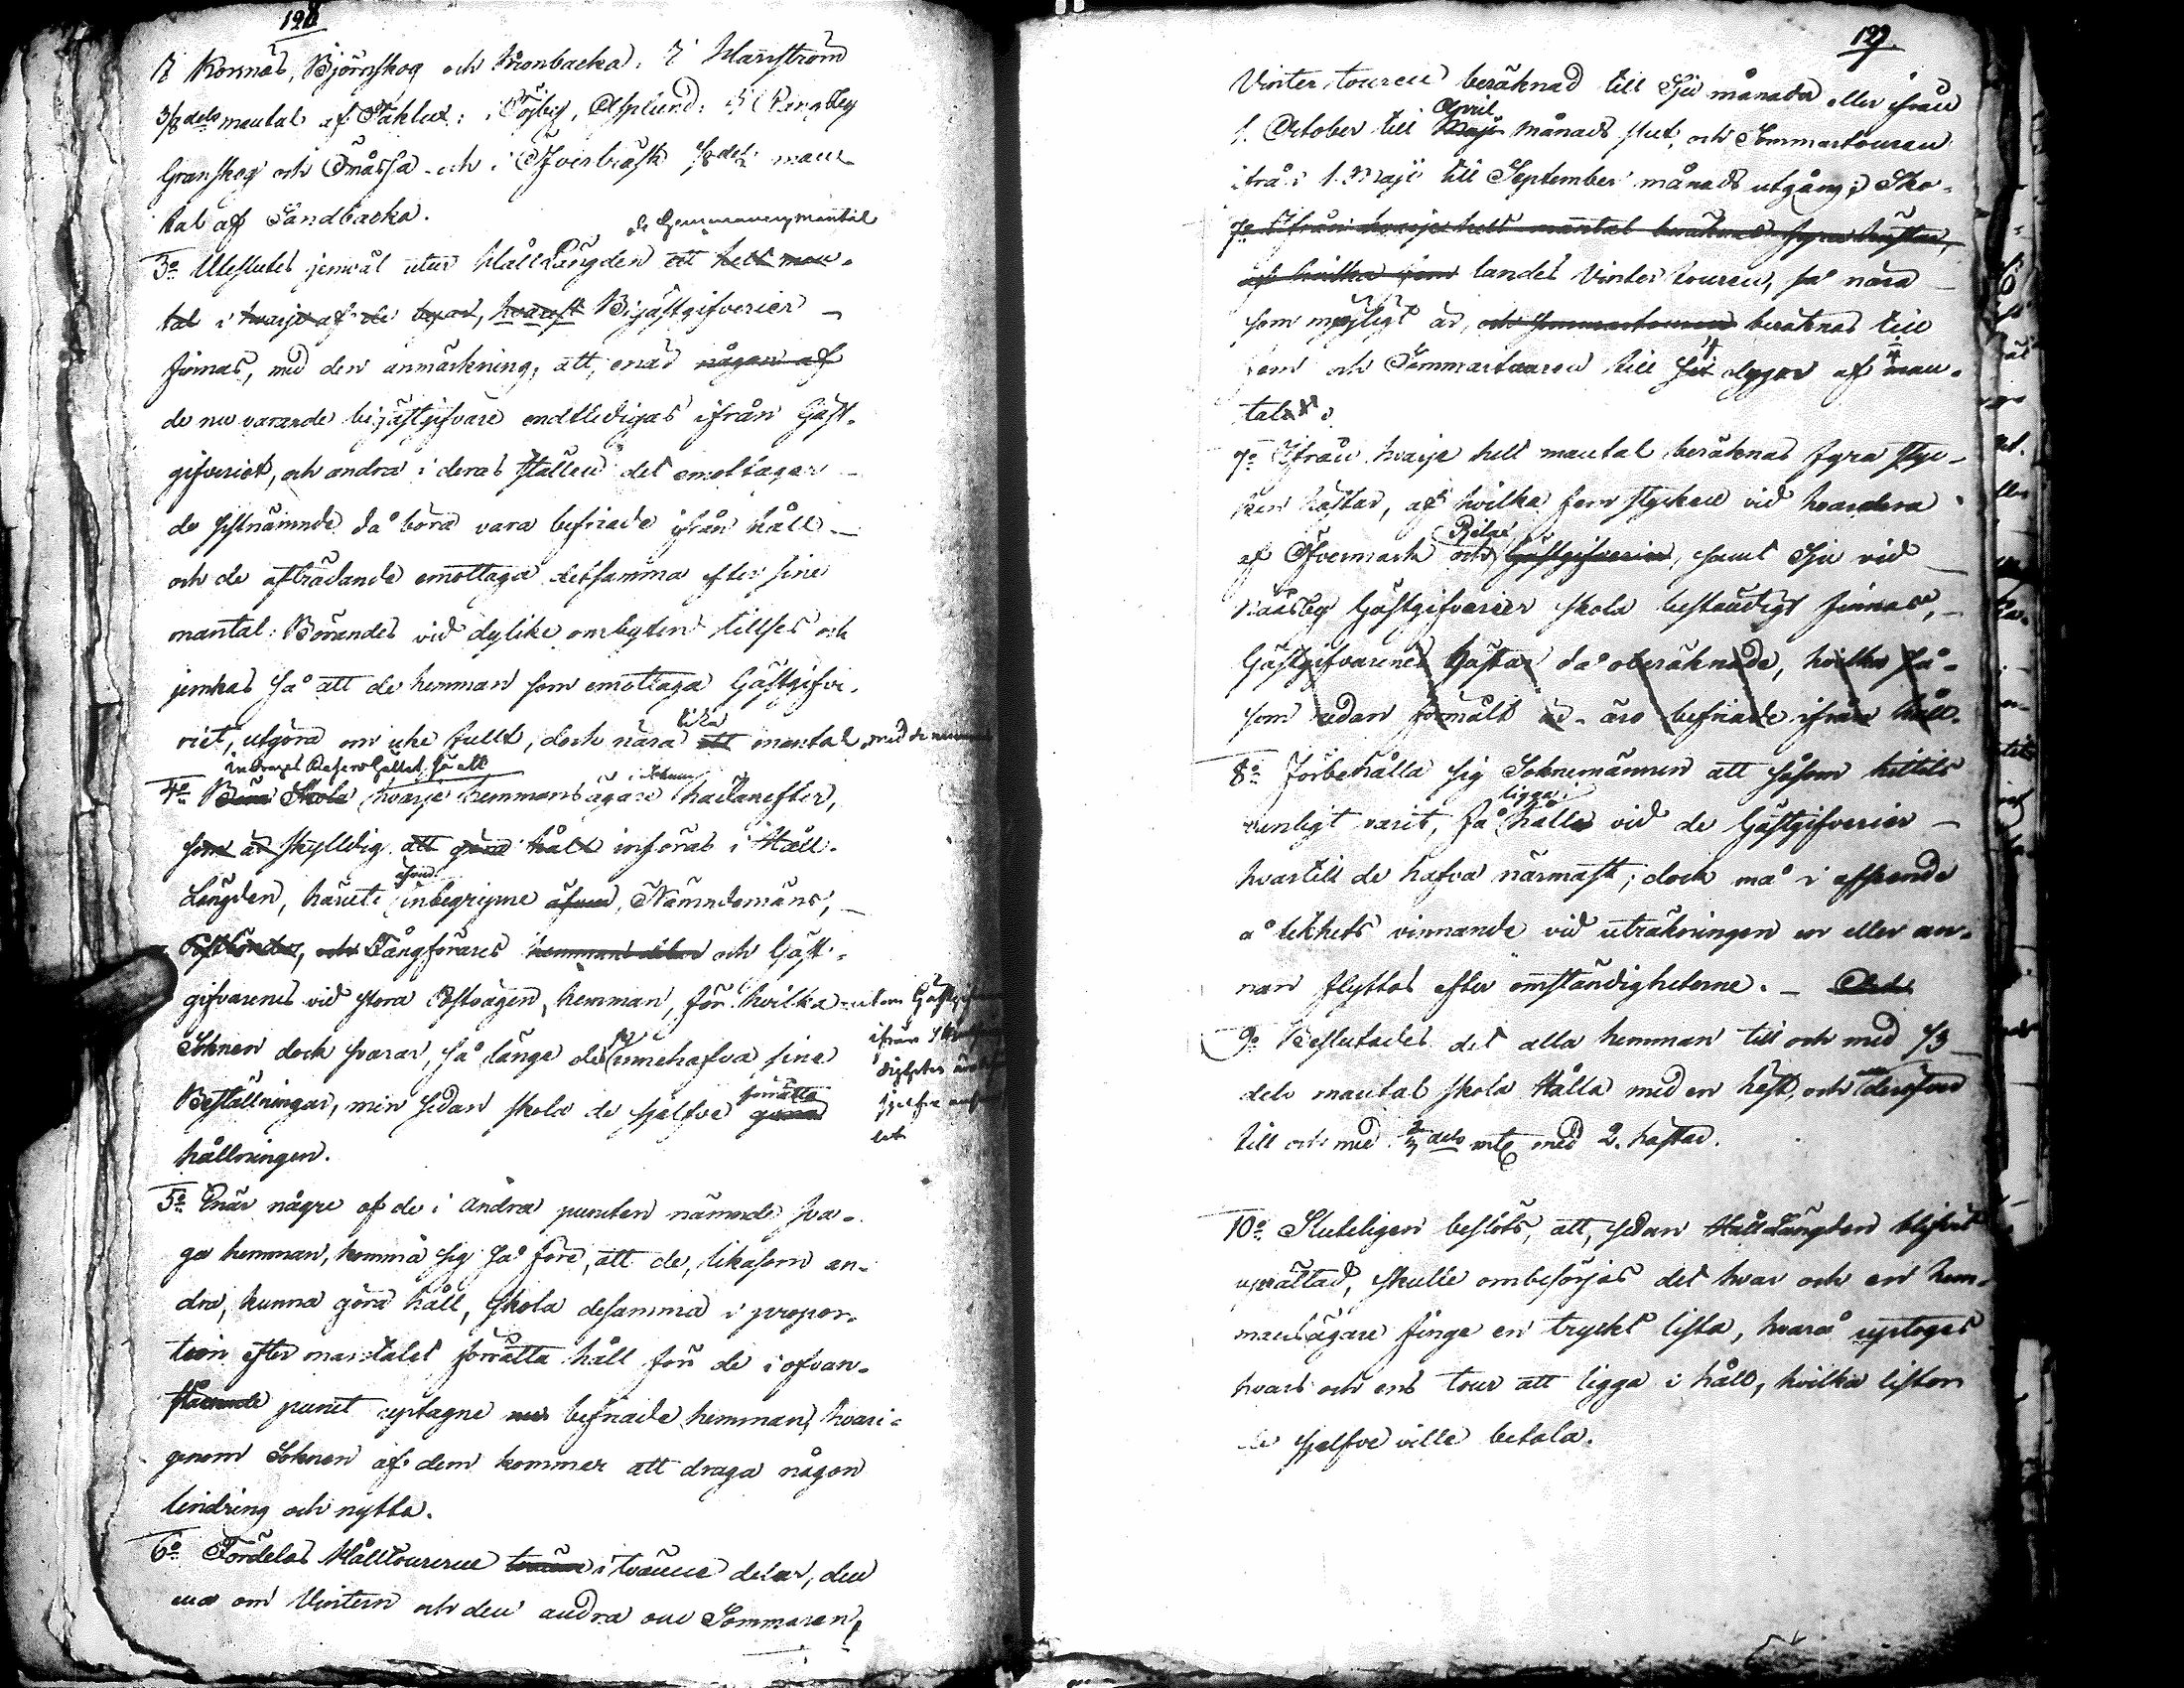 128
Kornäs, Björnskog och Kronbacka. I Harrström
3/8 dels mantal af Tahlux: i Töjby, Asplund: i Rangsby
Granskog och Småssa och i Öfverträsk 1/8 del man
tal af Sandbacka.
de Hemmanens mantal
3o Uteslutes jemväl utur Hållängden ett helt man-
tal i hvarje af de byar, hvarest Bigästgifverier
finnas, med den anmärkning, att, enär någon af
de nu varande bigästgifvare endtledigas ifrån Gäst-
gifveriet, och andra i deras ställen det emottager
de sistnämnde då böra vara befriade ifrån håll
och de afträdande emottaga detsamma efter sine
mantal: Börandes vid dylike ombyten tillses och
jemkas så att de hemman som emottaga Gästgifve-
lika
riet, utgöra om icke fullt, dock nära ett mantal med de
så att
4o Böra Skola hvarje hemmansägare i Soknen hädanefter,
som är skylldig att göra håll införas i Håll-
Längden, häruti äfven inbegripne äfven Nämndemäns,
Postbönders, och Fångförares hemmansdelar och Gäst-
gifvarenes vid stora Postvägen, hemman, för hvilka
Soknen dock svarar, så länge de innehafva sine
förrätta
Beställningar, men sedan skola de sjelfve göra
hållningen.
5o Enär någre af de i andra puncten nämnde sva-
ga hemman, komma sig så före, att de, likasom an-
dra, kunna göra håll, skola desamma i propor-
tion efter mantalet förrätta håll för de i ofvan-
stående punct uptagne nu befriade hemman, hvari-
genom Soknen af dem kommer att draga någon
lindring och nytta.
6o Fördelas Hålltourerne i tvänne delar, den
ena om Vintern och den andra om Sommaren,
129
Vinter touren beräknad till Sju månader eller ifrån
April
1. October till Maji månads slut, och Sommartouren
ifrån 1. Maji till September månads utgång; Sko-
7o Ifrån hvarje helt mantal beräknas fyra hästar,
af hvilka fem landes Vinter touren, så nära
som möjligt är, och sommartouren beräknas till
fem och Sommartouren till dygn af man-
talet.
7o Ifrån hvarje helt mantal beräknas fyra styc-
ken hästar, af hvilka fem stycken vid hvardera
Pjelax
af Öfvermark och Gästgifverier, samt Sju vid
Näsby Gästgifverier skola beständigt finnas,
Gästgifvarenes hästar då oberäknade, hvilka så-
som redan förmält är, äro befriade ifrån håll.
8o Förbehålla sig Soknemännen att såsom hittils
ligga i
vanligt varit, få hålla vid de Gästgifverier
hvartill de hafva närmast; dock må i afseende
å likhets vinnande vid uträkningen en eller an-
nan flyttas efter omständigheterne.
9o Beslutades det alla hemman till och med 1/3
dels mantal skola Hålla med en häst, och derofvan
till och med 2/3 dels mtl med 2. hästar.
10o Sluteligen beslöts, att, sedan HållLängden blifvit
uprättad, skulle ombesörjas det hvar och en hem-
mansägare finge en tryckt lista, hvarå uptoges
hvars och ens tour att ligga i håll, hvilka listor
de sjelfve ville betala.